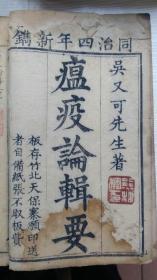 同治四年新鐫
吳又可先生著
瘟疫論輯要
板存竹北天保寨願印送
者自備紙張不取板費